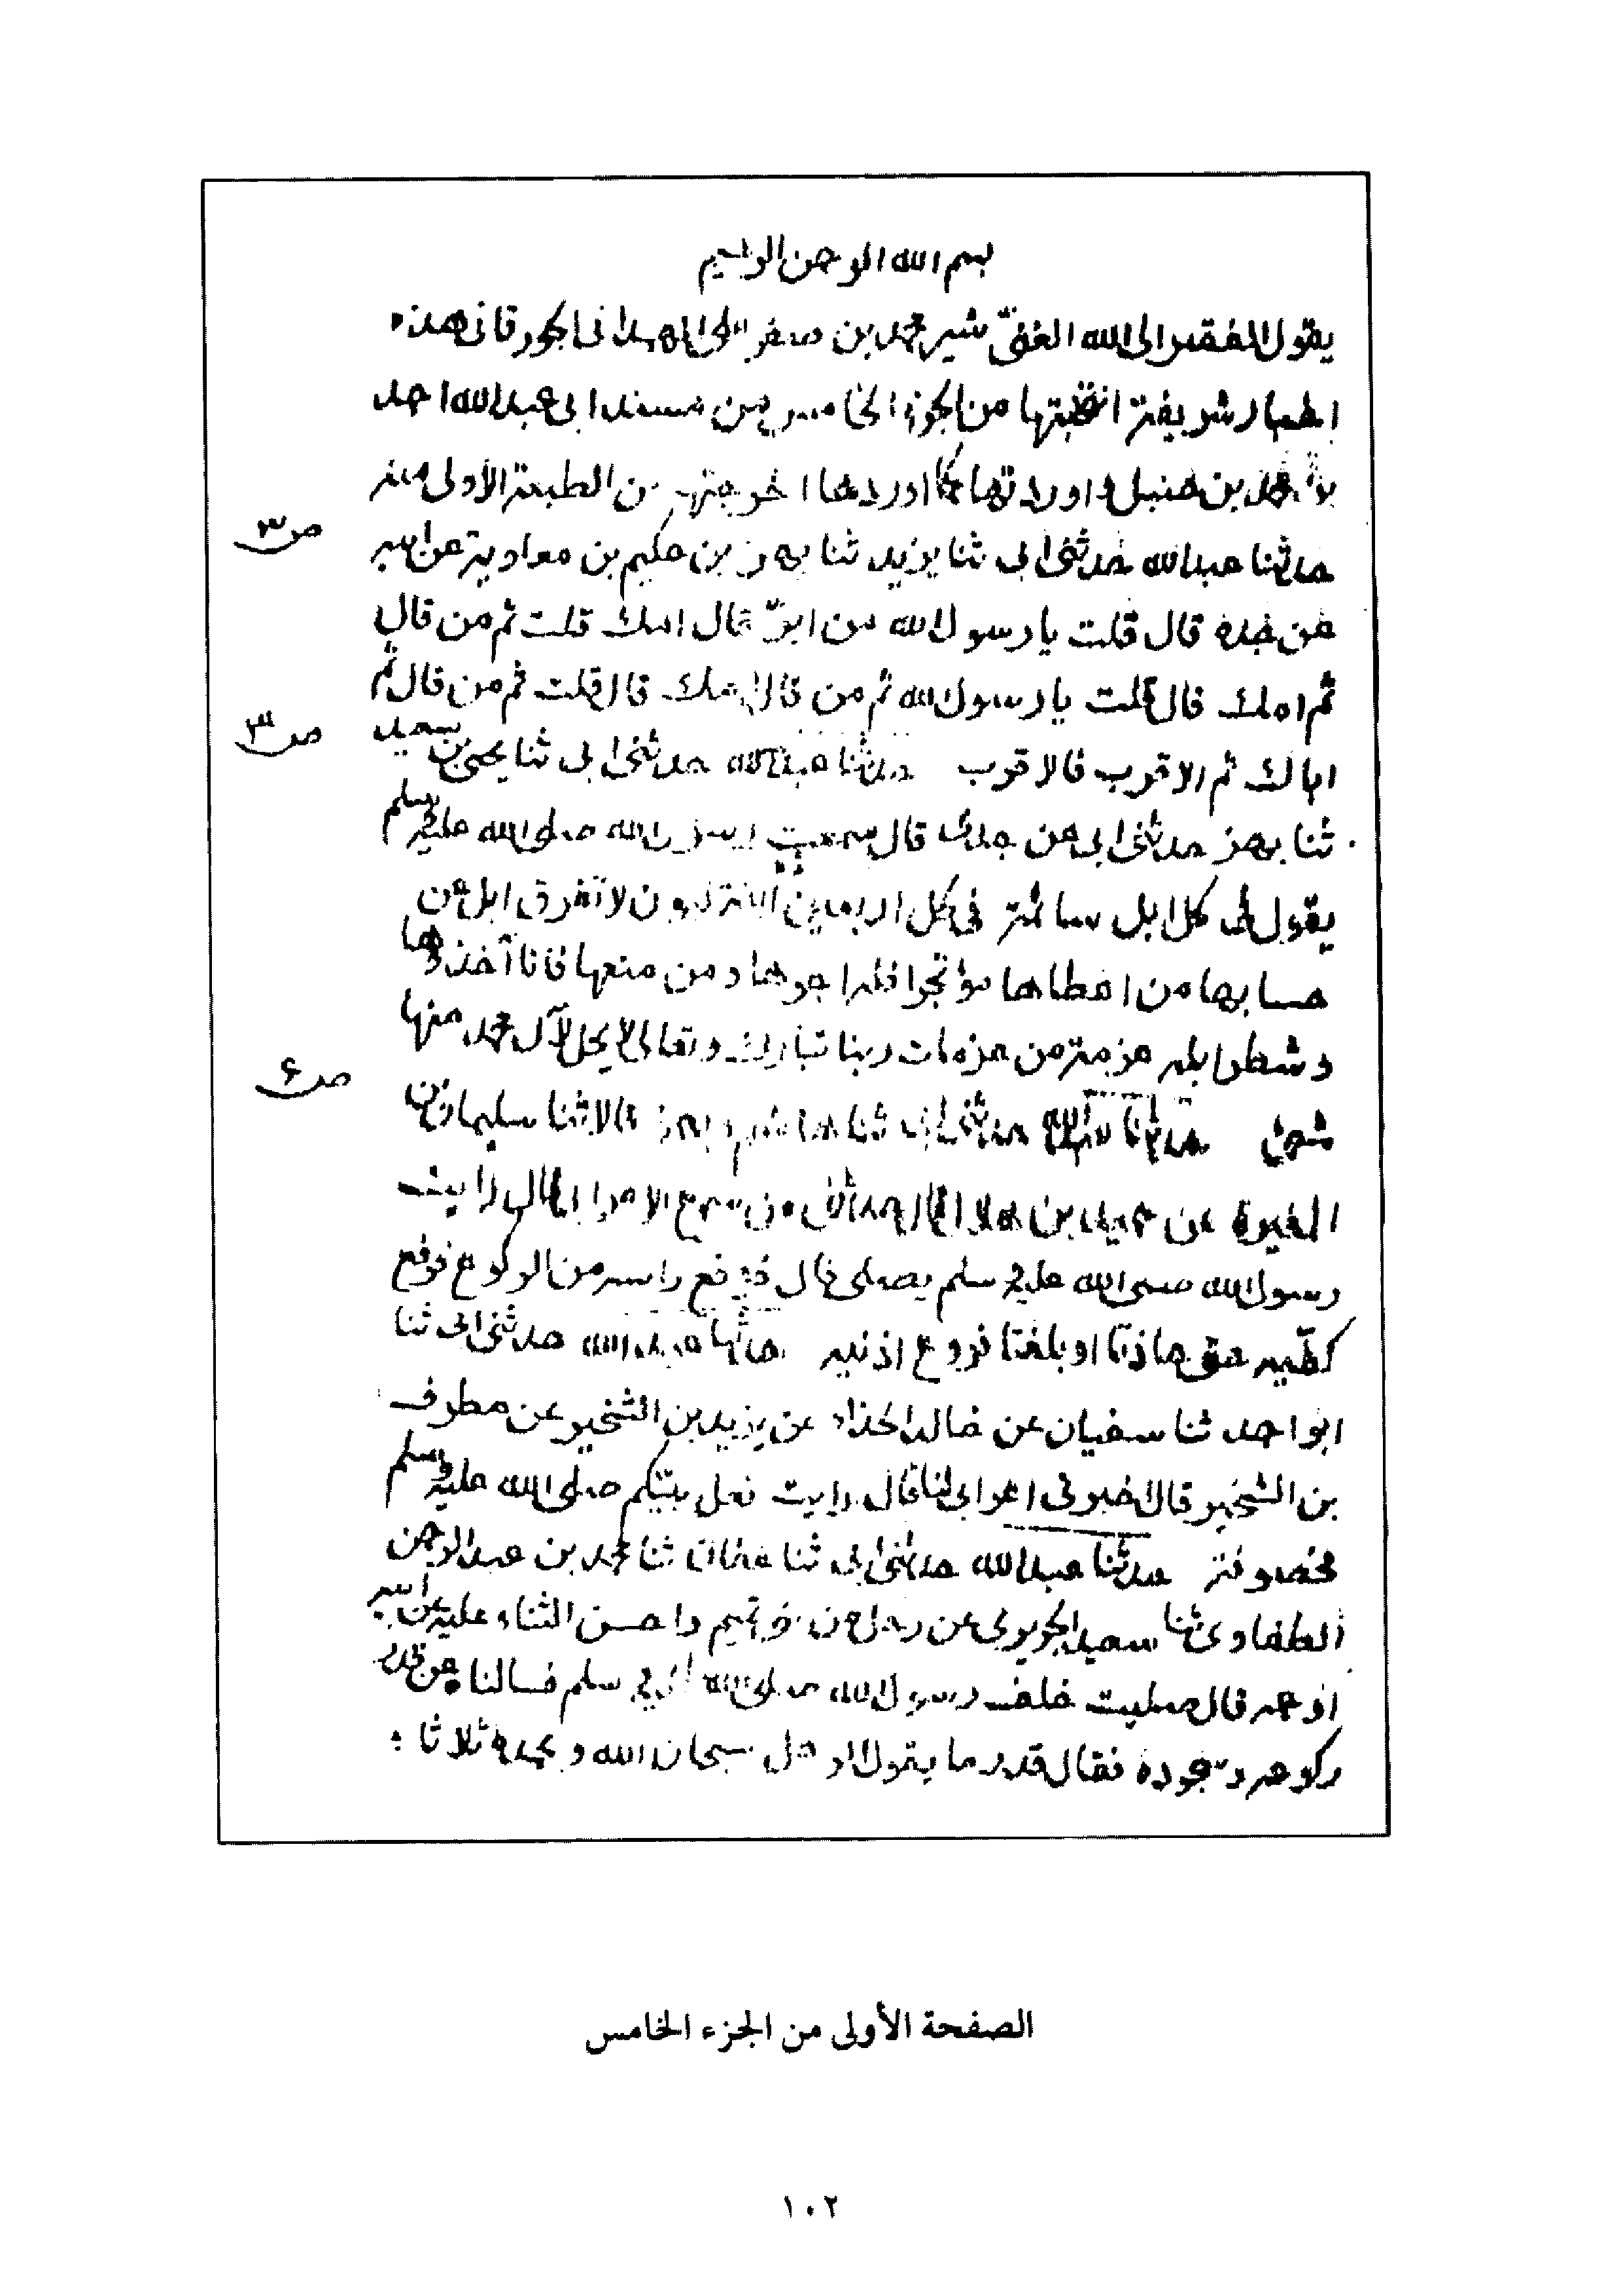 بسم الله الرحمن الرحيم
يقول الفقير الى الله الغنىّ شير محمد بن صفر على الهمدانى الجورقانى هذه
اخبار شريفة انتخبتها من الجزء الخامس من مسند ابى عبد الله احمد
بن محمد بن حنبل و اوردتها كما اوردها اخرجتها من الطبعة الأولى منه
حدثنا عبد الله حدثنى ابى ثنا يزيد ثنا بهز بن حكيم بن معاوية عن ابيه
ص٣
عن جده قال قلت يا رسول الله من ابرّ قال امك قلت ثم من قال
ثم امك قال قلت يا رسول الله ثم من قال امك قال قلت ثم من قال ثم
اباك ثم الاقرب فالاقرب حدثنا عبد الله حدثنى ابى ثنا يحيى بن سعيد
ص٣
ثنا بهز حدثنى ابى عن جدى قال سمعت رسول الله صلى الله عليه وسلم
يقول فى كل ابل سائمة فى كل اربعين ابنة لبون لا تفرق ابل عن
حسابها من اعطاها مؤتجرا فله اجرها و من منعها فانا آخذوها
و شطر ابله عزمة من عزمات ربنا تبارك و تعالى لا يحل لآل محمد منها
شىء حدثنا عبد الله حدثنى ابى ثنا هاشم و بهز قالا ثنا سليمان بن
ص۶
المغيرة عن حميد بن هلال قال حدثنى من سمع الاعرابى قال رايت
رسول الله صلى الله عليه و سلم يصلى قال فرفع راسه من الركوع فرفع
كفّيه حتى حاذتا او بلغتا فروع اذنيه حدثنا عبد الله حدثنى ابى ثنا
ابو احمد ثنا سفيان عن خالد الحذاء عن يزيد بن الشخير عن مطرف
بن الشخير قال اخبرنى اعرابى لنا قال رايت نعل نبيكم صلى الله عليه وسلم
مخصوفة حدثنا عبد الله حدثنى ابى ثنا عفان ثنا محمد بن عبد الرحمن
الطفاوى ثنا سعيد الجريرى عن رجل من بنى تميم و احسن الثناء عليه عن ابيه
او عمه قال صليت خلف رسول الله صلى الله عليه و سلم فسالناه عن قدر
ركوعه و سجوده فقال قدر ما يقول الرجل سبحان الله و بحمده ثلاثا ؛
الصفحة الأولى من الجزء الخامس
١٠٢